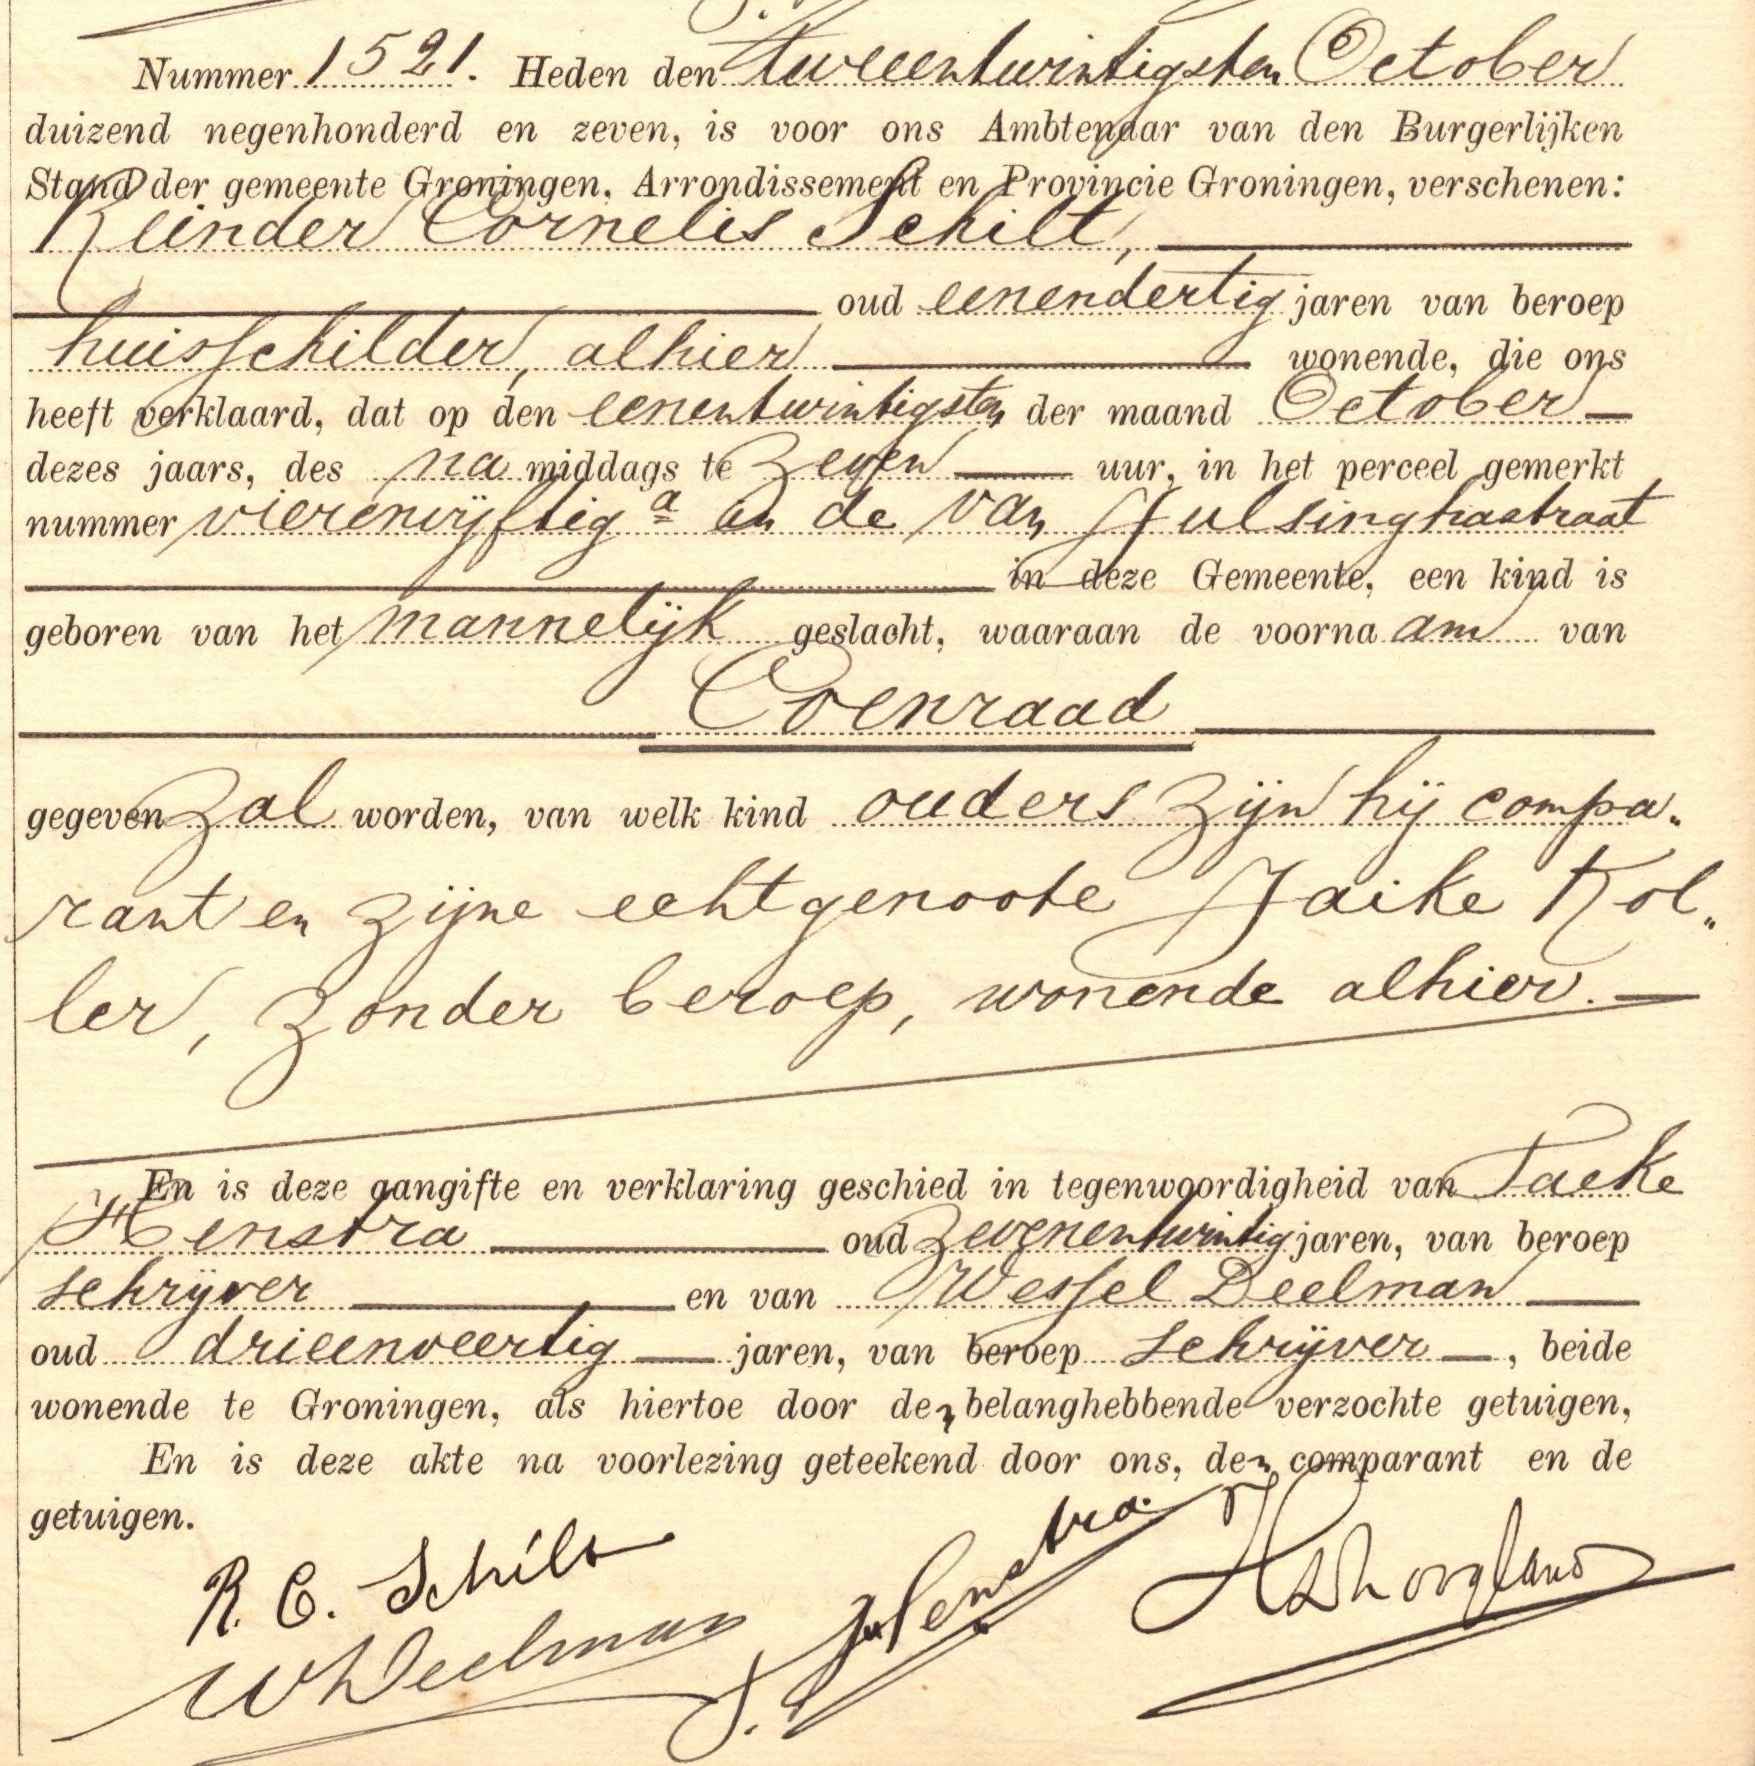 Nummer 1521. Heden den tweeentwintigsten October
duizend negenhonderd en zeven, is voor ons Ambtenaar van den Burgerlijken
Stand der gemeente Groningen, Arrondissement en Provincie Groningen, verschenen:
Reinder Cornelis Schilt,
oud eenendertig jaren van beroep
huisschilder, alhier wonende, die ons
heeft verklaard, dat op den eenentwintigsten der maand October
dezes jaars, des namiddags te zeven uur, in het perceel gemerkt
nummer vierenvijftig a in de van Julsinghastraat
in deze Gemeente, een kind is
geboren van het mannelijk geslacht, waaraan de voornaam van
Coenraad
gegeven zal worden, van welk kind ouders zijn hij compa„
rant en zijne echtgenoote Jaike Kol„
ler, zonder beroep, wonende alhier.
En is deze aangifte en verklaring geschied in tegenwoordigheid van Taeke
Henstra oud zevenentwintig jaren, van beroep
schrijver en van Wessel Deelman
oud drieenveertig jaren, van beroep schrijver, beide
wonende te Groningen, als hiertoe door den belanghebbende verzochte getuigen,
En is deze akte na voorlezing geteekend door ons, den comparant en de
getuigen.
R. C. Schilt
WDeelman
T. Henstra.